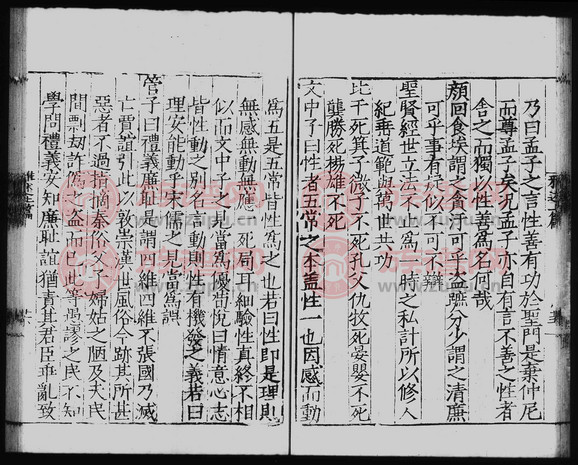 乃曰孟子之言性善有功於聖門是棄仲尼
而尊孟子矣況孟子亦自有言不善之性者
舍之而獨以性善為名何哉
顏回食埃謂之貪汙可乎盜蹠分少謂之清廉
可乎事有疑似不可不辯
聖賢經世立法不止為一時之私計所以修人
紀垂道範與萬世共功
比干死箕子微子不死孔父仇牧死晏嬰不死
龔勝死楊雄不死
文中子曰性者五常之本蓋性一也因感而動
為五是五常皆性為之也若曰性即是理則
無感無動無應一死局耳細驗性真終不相
似而文中子之見當為優荀悅曰情意心志
皆性動之別名言動則性有機發之義若曰
理安能動乎宋儒之見當為誤
管子曰禮義廉恥是謂四維四維不張國乃滅
亡賈誼引此以敦崇漢世風俗今跡其所甚
惡者不過指摘秦俗父子婦姑之陋及夫民
間剽劫許偽之盜而已此等愚謬之民不知
學問禮義安知廉恥誼猶責其君臣乖亂致